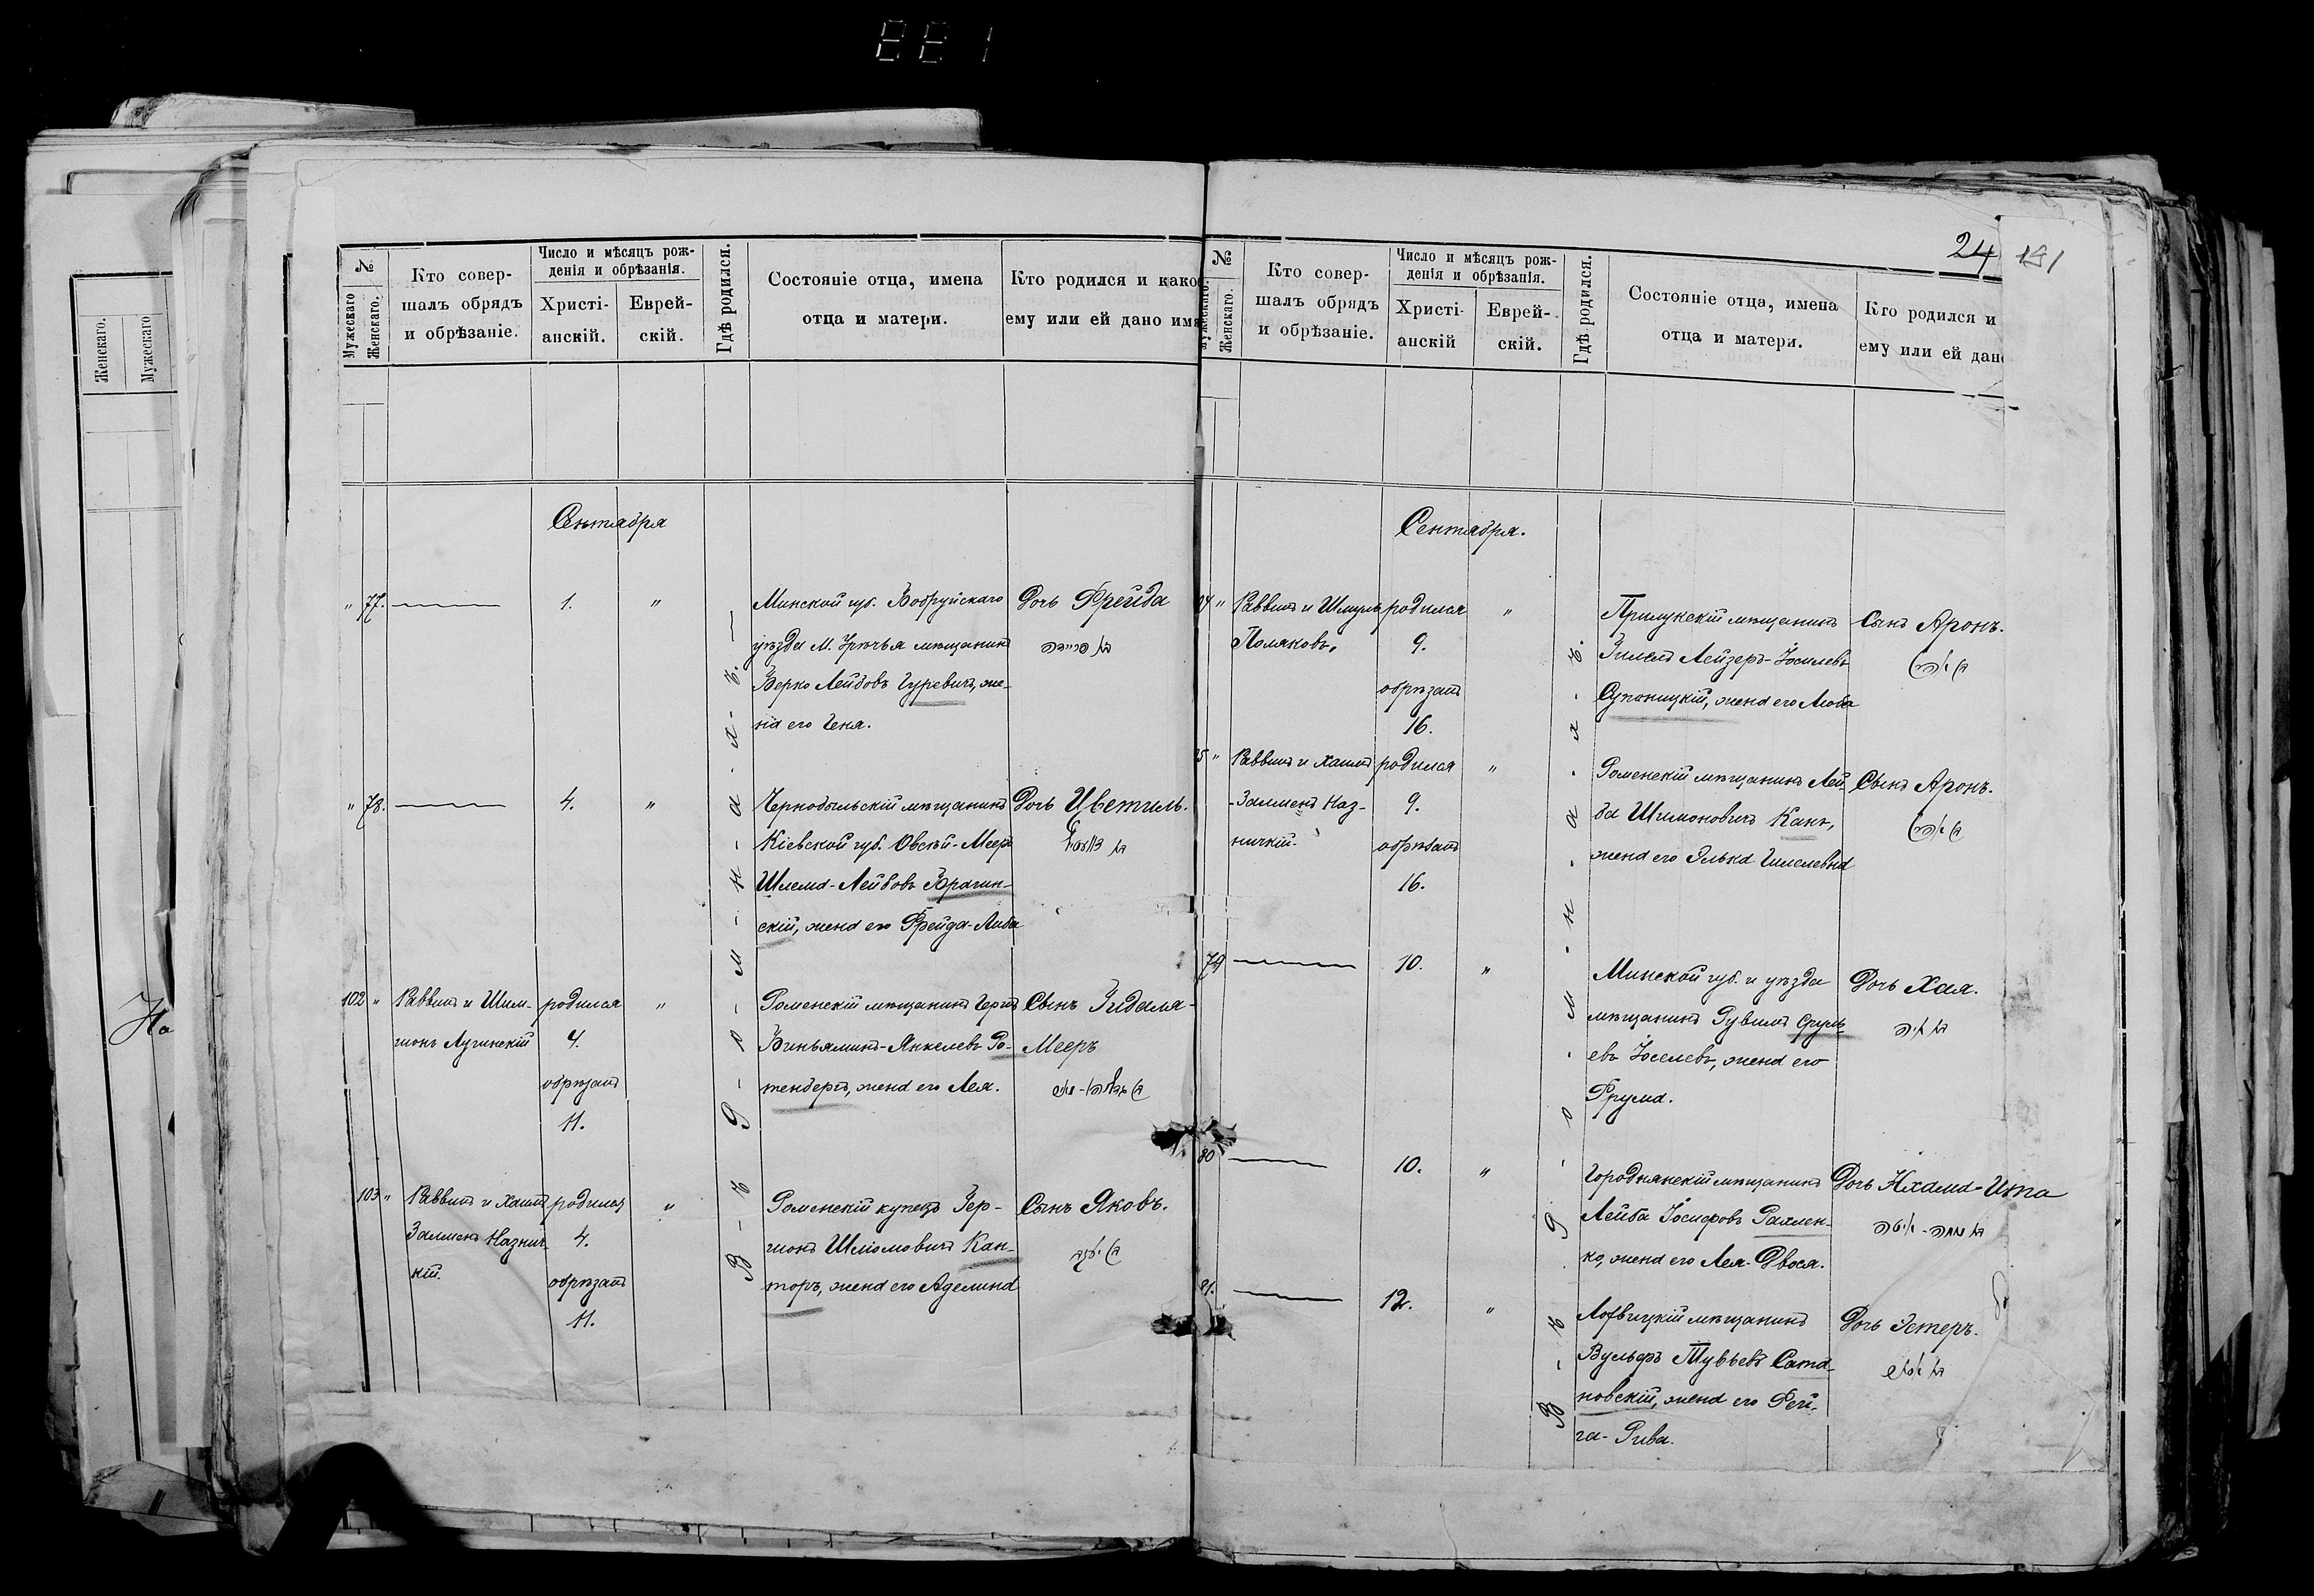 221
Женскаго. Мужескаго
На
№
Мужескаго Женскаго.
Кто совер-
шалъ обрядъ
и обрѣзаніе.
Число и мѣсяцъ рож-
денія и обрѣзанія.
Христі-
анскій.
Еврей-
скій.
Гдѣ родился.
Состояніе отца, имена
отца и матери.
Кто родился и како
ему или ей дано имя
Сентября
" 77. 1. "
Минской губ. Бобруйскаго
уѣзда М. Урѣчья мѣщанинъ
Берко Лейбовъ Гуревичъ, же-
на его Геня.
Дочь Фрейда
" 78. 4. "
Чернобыльскій мѣщанинъ
Кіевской губ. Овсѣй-Мееръ
Шлема-Лейбовъ Брагин-
скій, жена его Фрейда-Либа
Дочь Цветиль.
102 "
Раввинъ и Шим-
шонъ Лугинскій
родился
4.
обрѣзанъ
11.
"
Роменскій мѣщанинъ Герцъ
Биньяминъ-Янкелевъ Ро-
тенбергъ, жена его Лея.
Сынъ Гидаля-
Мееръ
103 "
Раввинъ и Хаимъ
Залменъ Назнич-
кій.
родился
4.
обрѣзанъ
11.
"
Роменскій купецъ Гер-
шонъ Шлiомовичъ Кан-
торъ, жена его Аделина
Сынъ Яковъ.
В - ъ г - о - м - н - а - х - ъ. —
24 191
№
Мужескаго. Женскаго.
Кто совер-
шалъ обрядъ
и обрѣзаніе.
Число и мѣсяцъ рож-
денія и обрѣзанія.
Христі-
анскій
Еврей-
скій.
Гдѣ родился.
Состояніе отца, имена
отца и матери.
Кто родился и
ему или ей дано
Сентября.
"
Раввинъ и Шмуль
Поляковъ.
родился
9.
обрѣзанъ
16.
"
Прилукскій мѣщанинъ
Зимелъ Лейзеръ-Іосилевъ
Супоницкій, жена его Люба
Сынъ Аронъ.
"
Раввинъ и Хаимъ
-Залменъ Наз-
ничкій.
родился
9.
обрѣзанъ
16.
"
Роменскій мѣщанинъ Лей-
ба Шимоновичъ Канъ,
жена его Элька Гишелевна
Сынъ Аронъ.
79 10. "
Минской губ. и уѣзда
мѣщанинъ Рувимъ Сруль-
евъ Іоселевъ, жена его
Фрума.
Дочь Хая.
80 10. "
Городнянскій мѣщанинъ
Лейба Іосифовъ Рахлен-
ко, жена его Лея-Двося.
Дочь Нхама-Ита
81. 12. "
Лохвицкій мѣщанинъ
Вульфъ Тувьевъ Сата-
новскій, жена его Рей-
за-Рива.
Дочь Эстеръ.